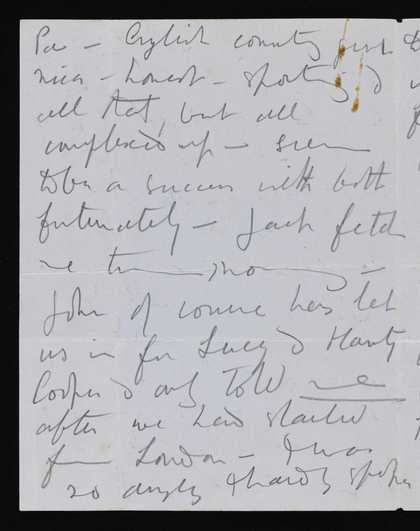 Pa - English county girl
nice - honest - sporting &
all that, but all
complexed up - seem
to be a success with both
fortunately - Jack fetch
me tomorrow -
John of course has let
us in for Lucy & Hanty
Cooper & only told me
after we had started
for London - I was
so angry I hardly spoke